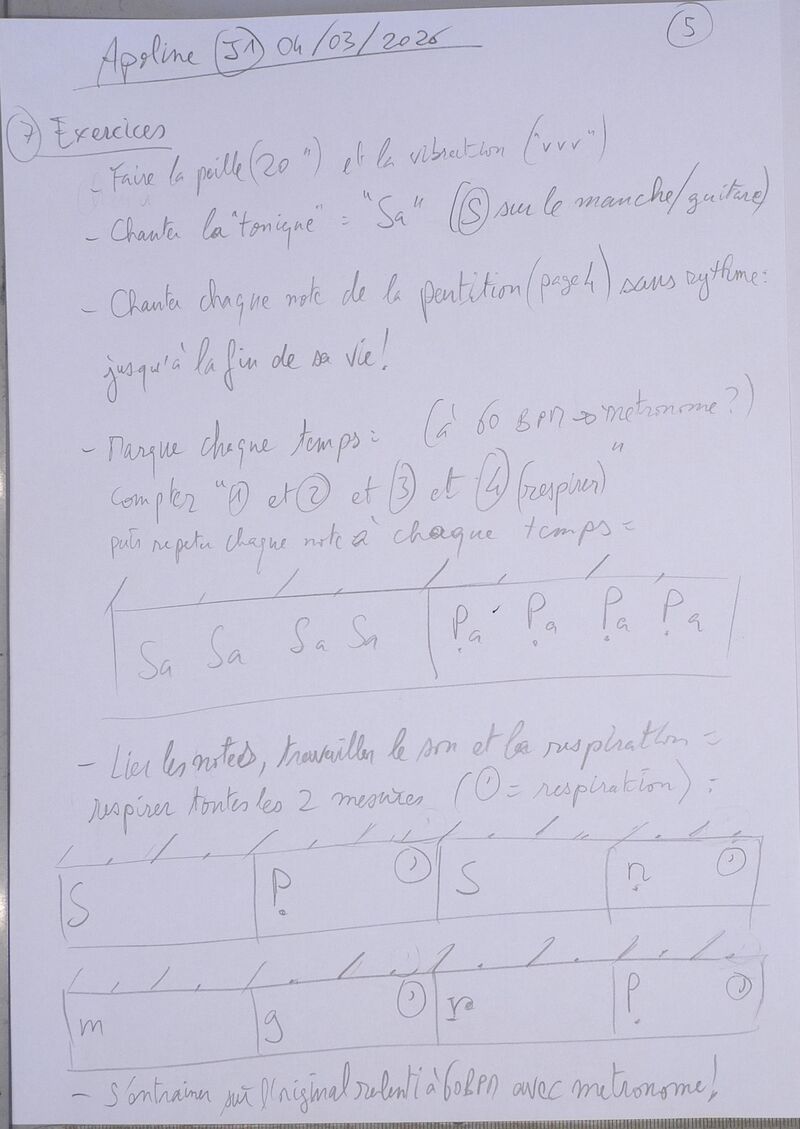 Apoline (J1) 04/03/2026
5
7 Exercices
- Faire la paille (20") et la vibration ("vvv")
- Chanter la "tonique" = "Sa" (S sur le manche/guitare)
- Chanter chaque note de la partition (page 4) sans rythme :
jusqu'à la fin de sa vie !
- Marque chaque temps : (à 60 BPM → metronome ?)
compter "1 et 2 et 3 et 4 (respirer)"
puis repeter chaque note à chaque temps =
Sa Sa Sa Sa Pa Pa Pa Pa
- Lier les notes, travailler le son et la respiration =
respirer toutes les 2 mesures (' = respiration) :
S P ' S n '
m g ' r P '
- S'entrainer sur l'original ralenti à 60 BPM avec metronome !